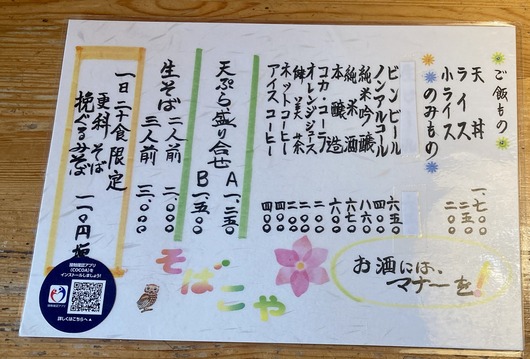 ご飯もの
天丼 一、七〇〇
ライス 二五〇
小ライス 二〇〇
のみもの
ビンビール 六五〇
ノンアルコール 四〇〇
純米吟醸 八六〇
純米酒 六七〇
本醸造
コカ・コーラ
オレンジジュース
ホットコーヒー 四〇〇
アイスコーヒー 四〇〇
天ぷら盛り合せ A 一、二五〇
B 一、五〇
生そば 二人前 二、〇〇〇
三人前 三、〇〇〇
一日二十食限定
更科そば
挽ぐるみそば 一一〇円
お酒には、
マナーを!
そばこや
接触確認アプリ
(COCOA)を
インストールしましょう!
詳しくはこちらへ▲